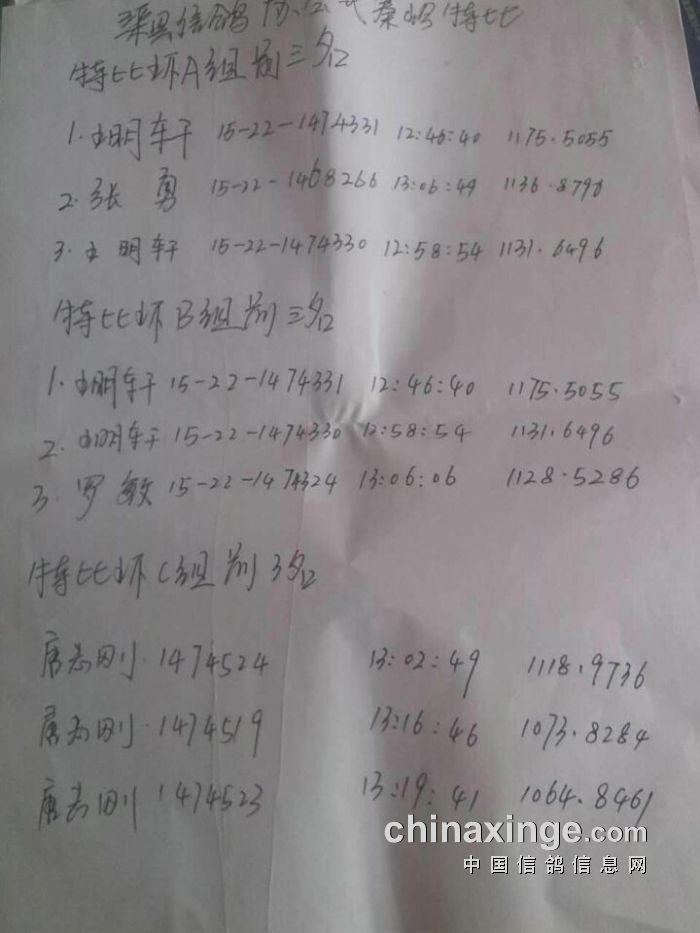 渠县信鸽协会 秦岭特比
特比环A组前三名
1. 明轩 15-22-1474331 12:46:40 1175.5055
2. 张勇 15-22-1468266 13:06:49 1136.8796
3. 明轩 15-22-1474330 12:58:54 1131.6496
特比环B组前三名
1. 明轩 15-22-1474331 12:46:40 1175.5055
2. 明轩 15-22-1474330 12:58:54 1131.6496
3. 罗敏 15-22-1474324 13:06:06 1128.5286
特比环C组前3名
唐志刚. 1474524 13:02:49 1118.9736
唐志刚. 1474519 13:16:46 1073.8284
唐志刚 1474523 13:19:41 1064.8461
chinaxinge.com
中国信鸽信息网